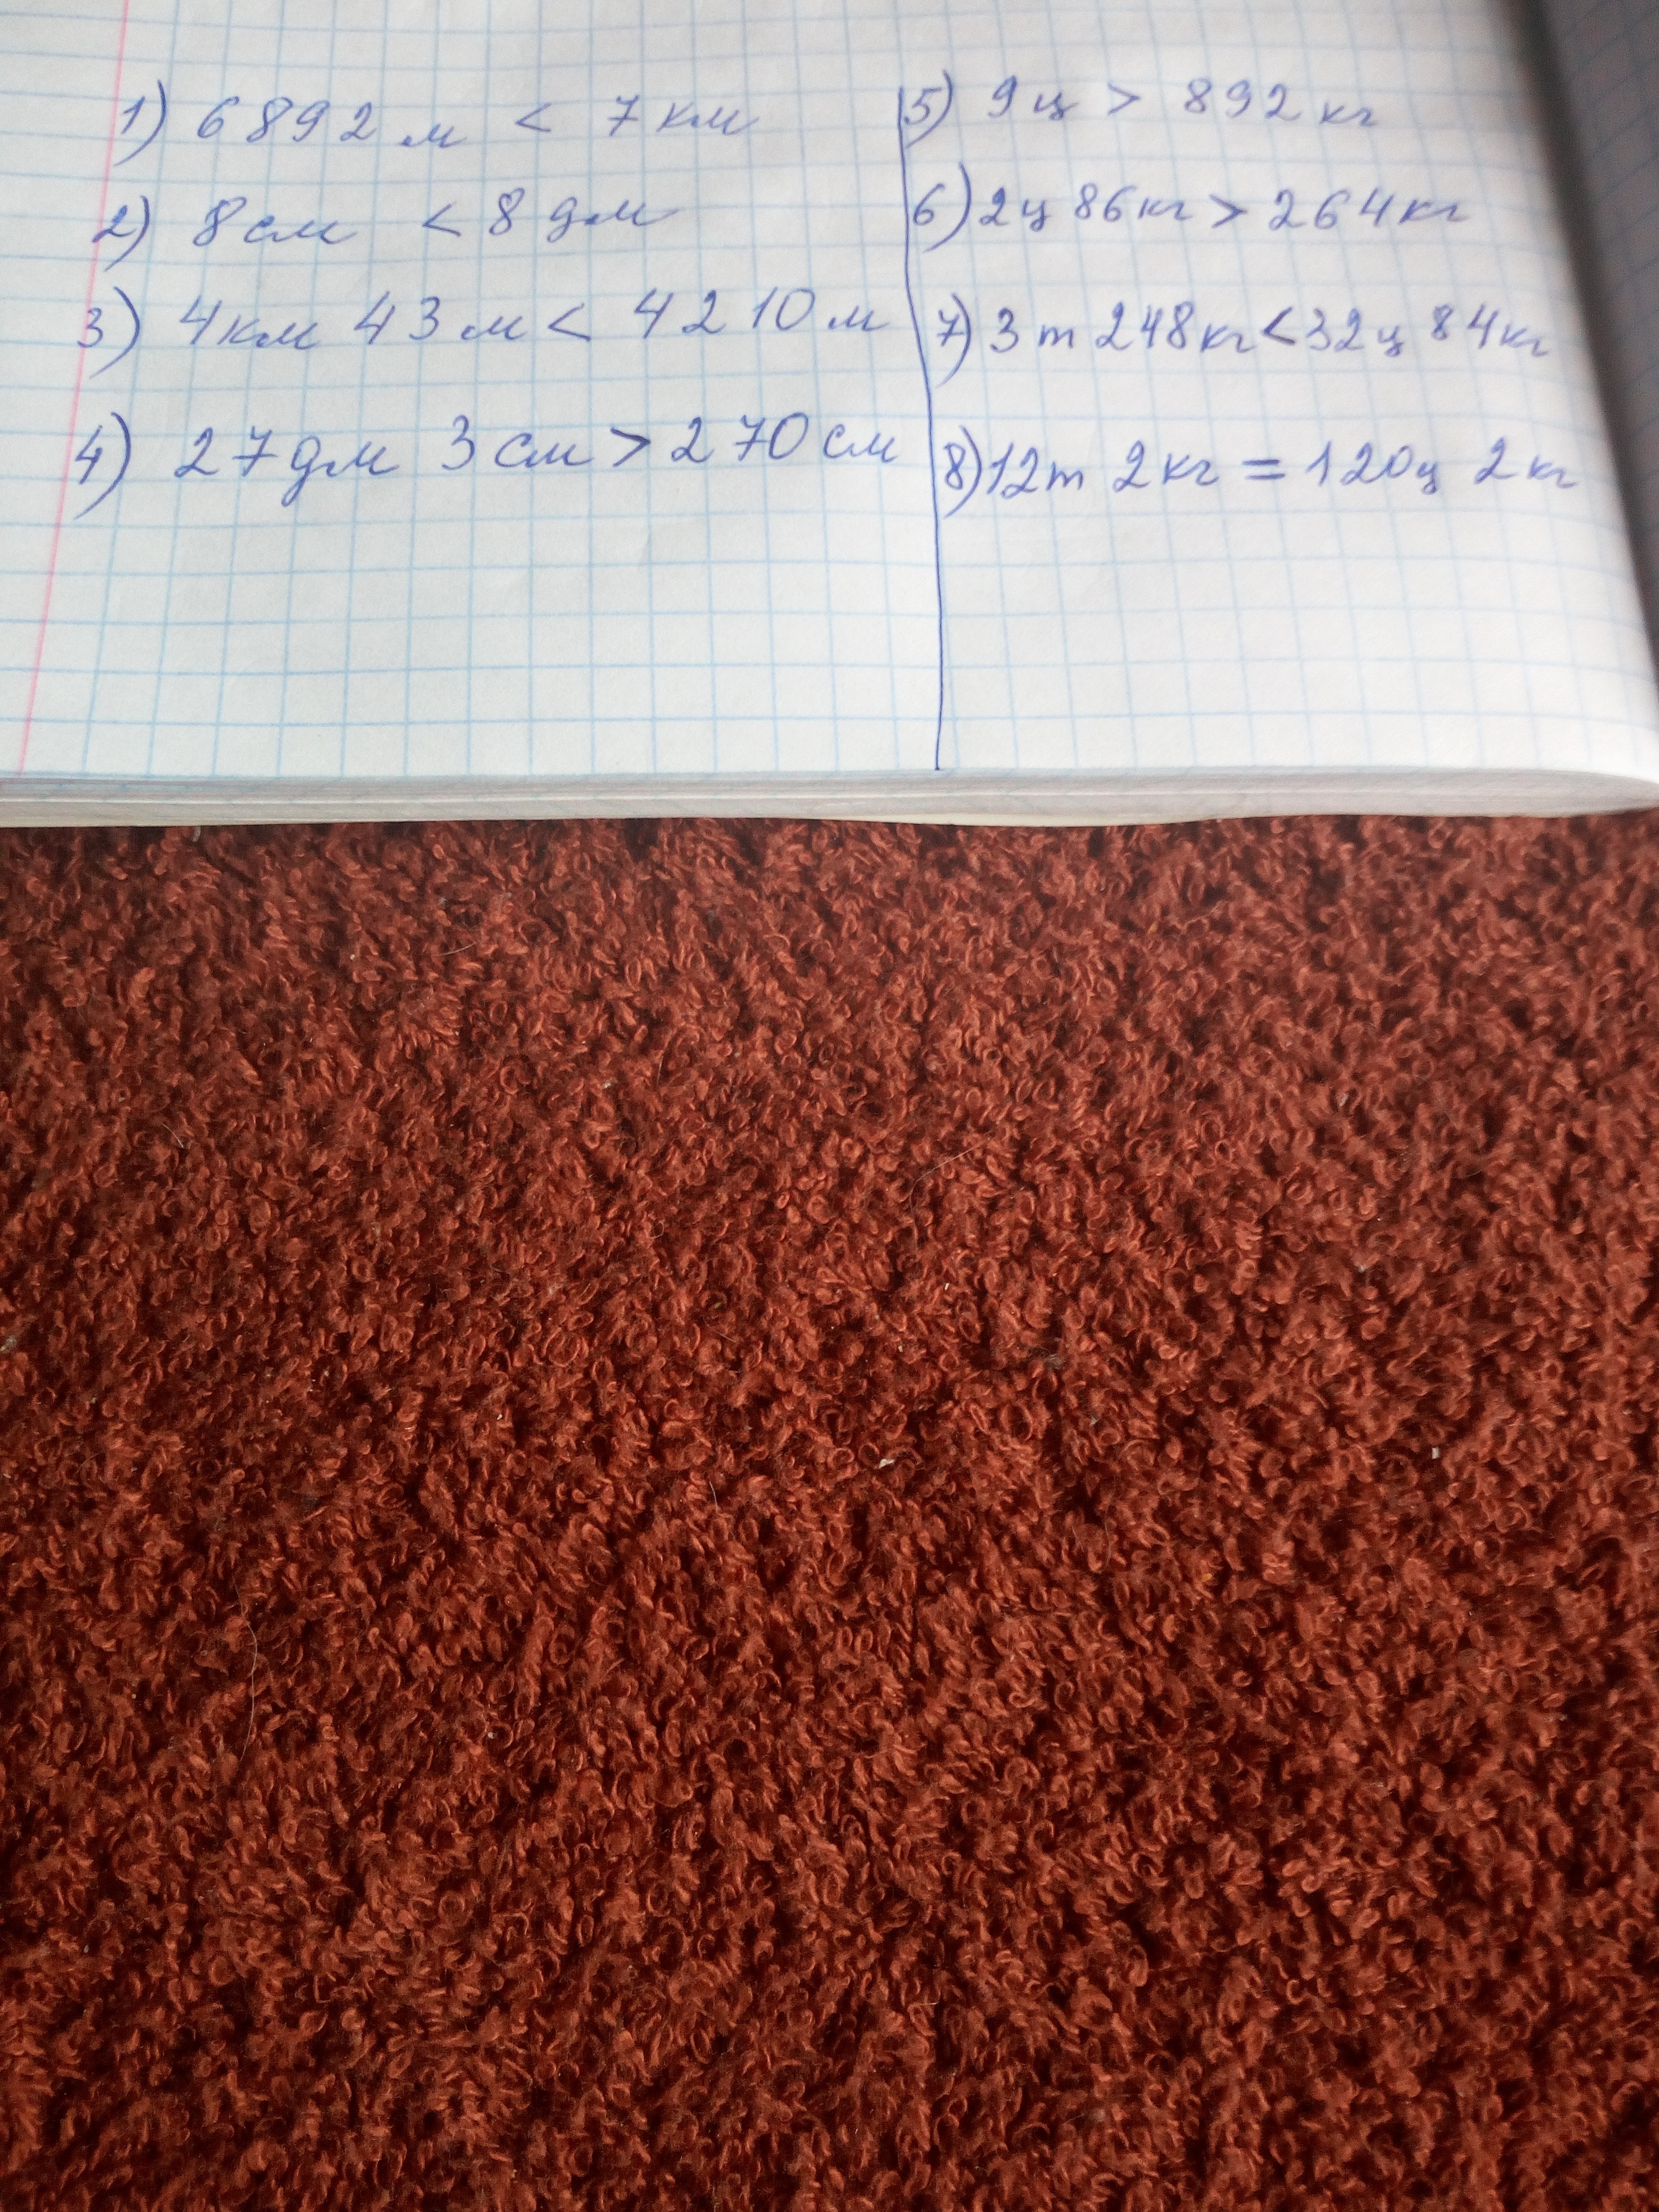 1) 6892 м < 7 км
2) 8 см < 8 дм
3) 4 км 43 м < 4210 м
4) 27 дм 3 см > 270 см
5) 9 ц > 892 кг
6) 2 ц 86 кг > 264 кг
7) 3 т 248 кг < 32 ц 84 кг
8) 12 т 2 кг = 120 ц 2 кг